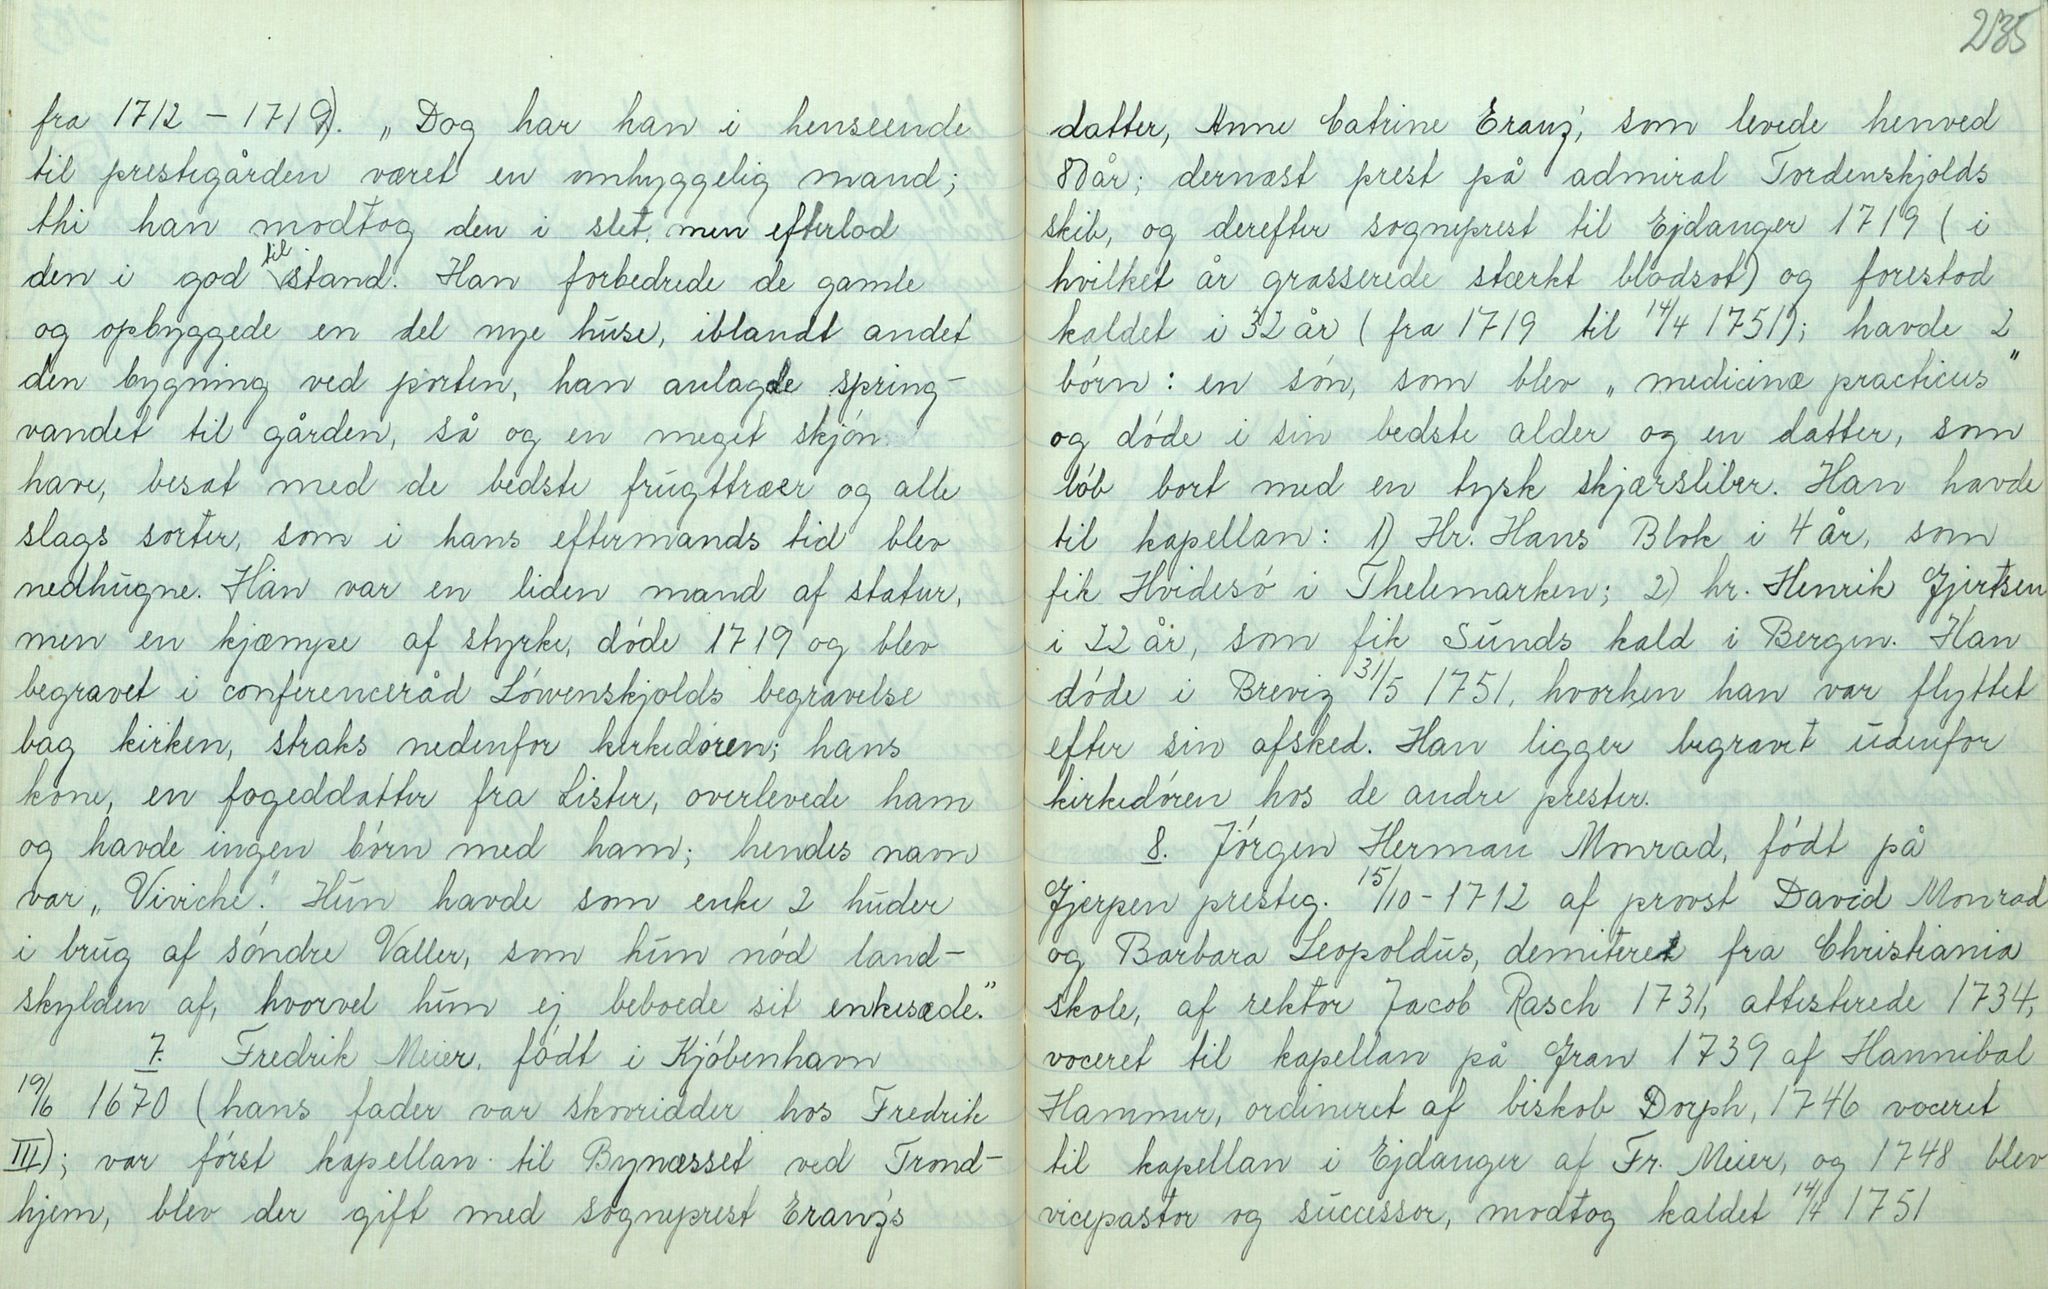 fra 1712 – 1719). „Dog har han i henseende
til prestegården været en omhyggelig mand;
thi han modtog den i slet, men efterlod
den i god tilstand. Han forbedrede de gamle
og opbyggede en del nye huse, iblandt andet
den bygning ved porten, han anlagde spring-
vandet til gården, så og en meget skjón
have, besat med de bedste frugttræer og alle
slags sorter, som i hans eftermands tid blev
nedhugne. Han var en liden mand af statur,
men en kjæmpe af styrke, dóde 1719 og blev
begravet i conferenceråd Lówenskjolds begravelse
bag kirken, straks nedenfor kirkedoren; hans
kone, en fogeddatter fra Lister, overlevede ham
og havde ingen bórn med ham; hendes navn
var „Viviche". Hun havde som enke 2 huder
i brug af sóndre Valler, som hun nód land-
skylden af, hvorvel hun ej beboede sit enkesæde."
7. Fredrik Meier, fódt i Kjóbenhavn
19/6 1670 (hans fader var skovridder hos Fredrik
III); var fórst kapellan til Bynæsset ved Trond-
hjem, blev der gift med sogneprest Eranz's
235
datter, Anne Catrine Eranz', som levede henved
80 år; dernæst prest på admiral Tordenskjolds
skib, og derefter sogneprest til Ejdanger 1719 (i
hvilket år grasserede stærkt blodsot) og forestod
kaldet i 32 år (fra 1719 til 14/4 1751); havde 2
bórn: en són, som blev „medicinæ practicus"
og dóde i sin bedste alder og en datter, som
lób bort med en tysk skjærsliber. Han havde
til kapellan: 1) Hr. Hans Blok i 4 år, som
fik Hvidesó i Thelemarken; 2) hr. Henrik Gjertsen
i 22 år, som fik Sunds kald i Bergen. Han
dóde i Brevig 31/5 1751, hvorhen han var flyttet
efter sin afsked. Han ligger begravet udenfor
kirkedóren hos de andre prester.
8. Jórgen Herman Monrad, fódt på
Gjerpen presteg. 15/10 - 1712 af provst David Monrad
og Barbara Leopoldus, demiteret fra Christiania
skole, af rektor Jacob Rasch 1731, attesterede 1734,
voceret til kapellan på Gran 1739 af Hannibal
Hammer, ordineret af biskob Dorph, 1746 voceret
til kapellan i Ejdanger af Fr. Meier, og 1748 blev
vicepastor og successor, modtog kaldet 14/4 1751